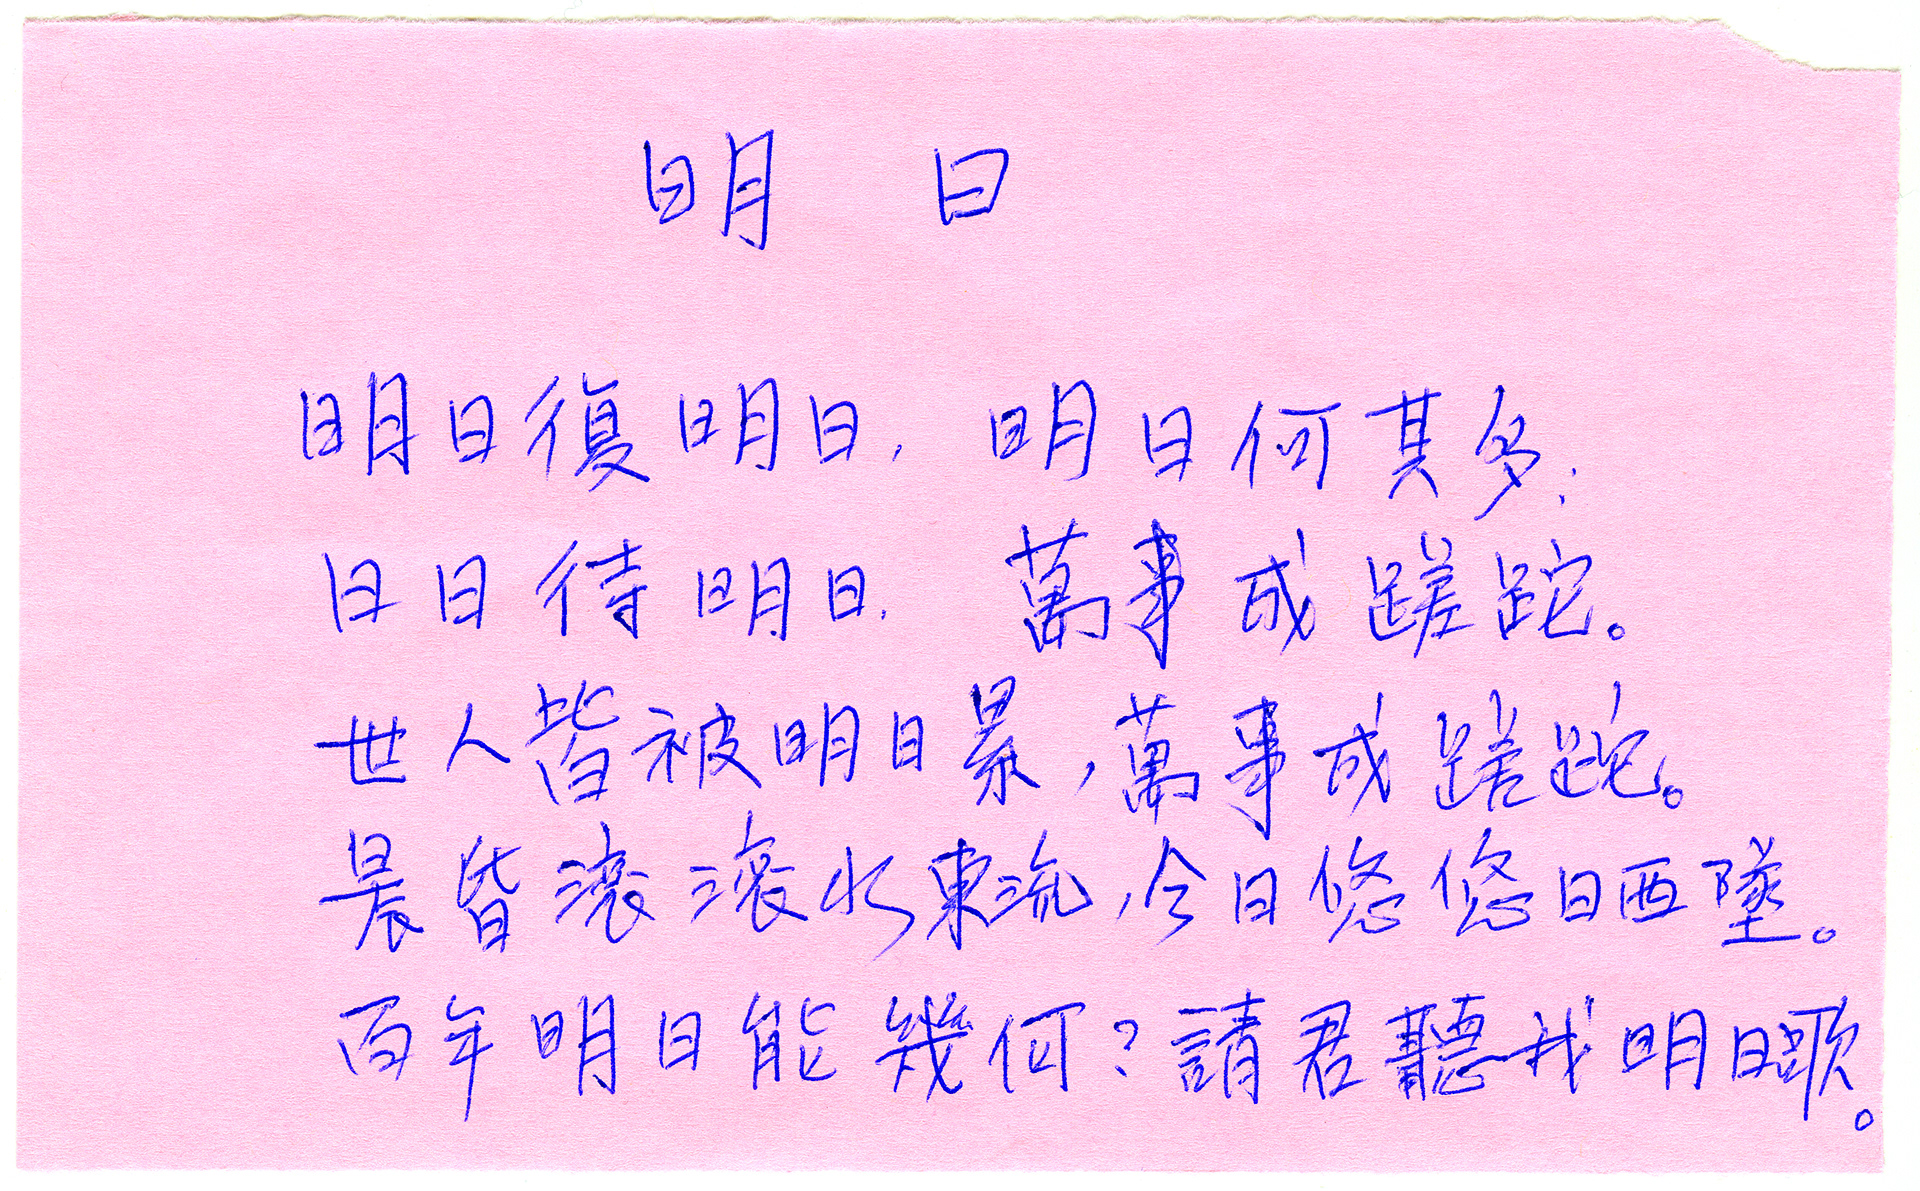 明 日
明日復明日, 明日何其多;
日日待明日, 萬事成蹉跎。
世人皆被明日累,萬事成蹉跎。
晨昏滾滾水東流,今日悠悠日西墜。
百年明日能幾何?請君聽我明日歌。